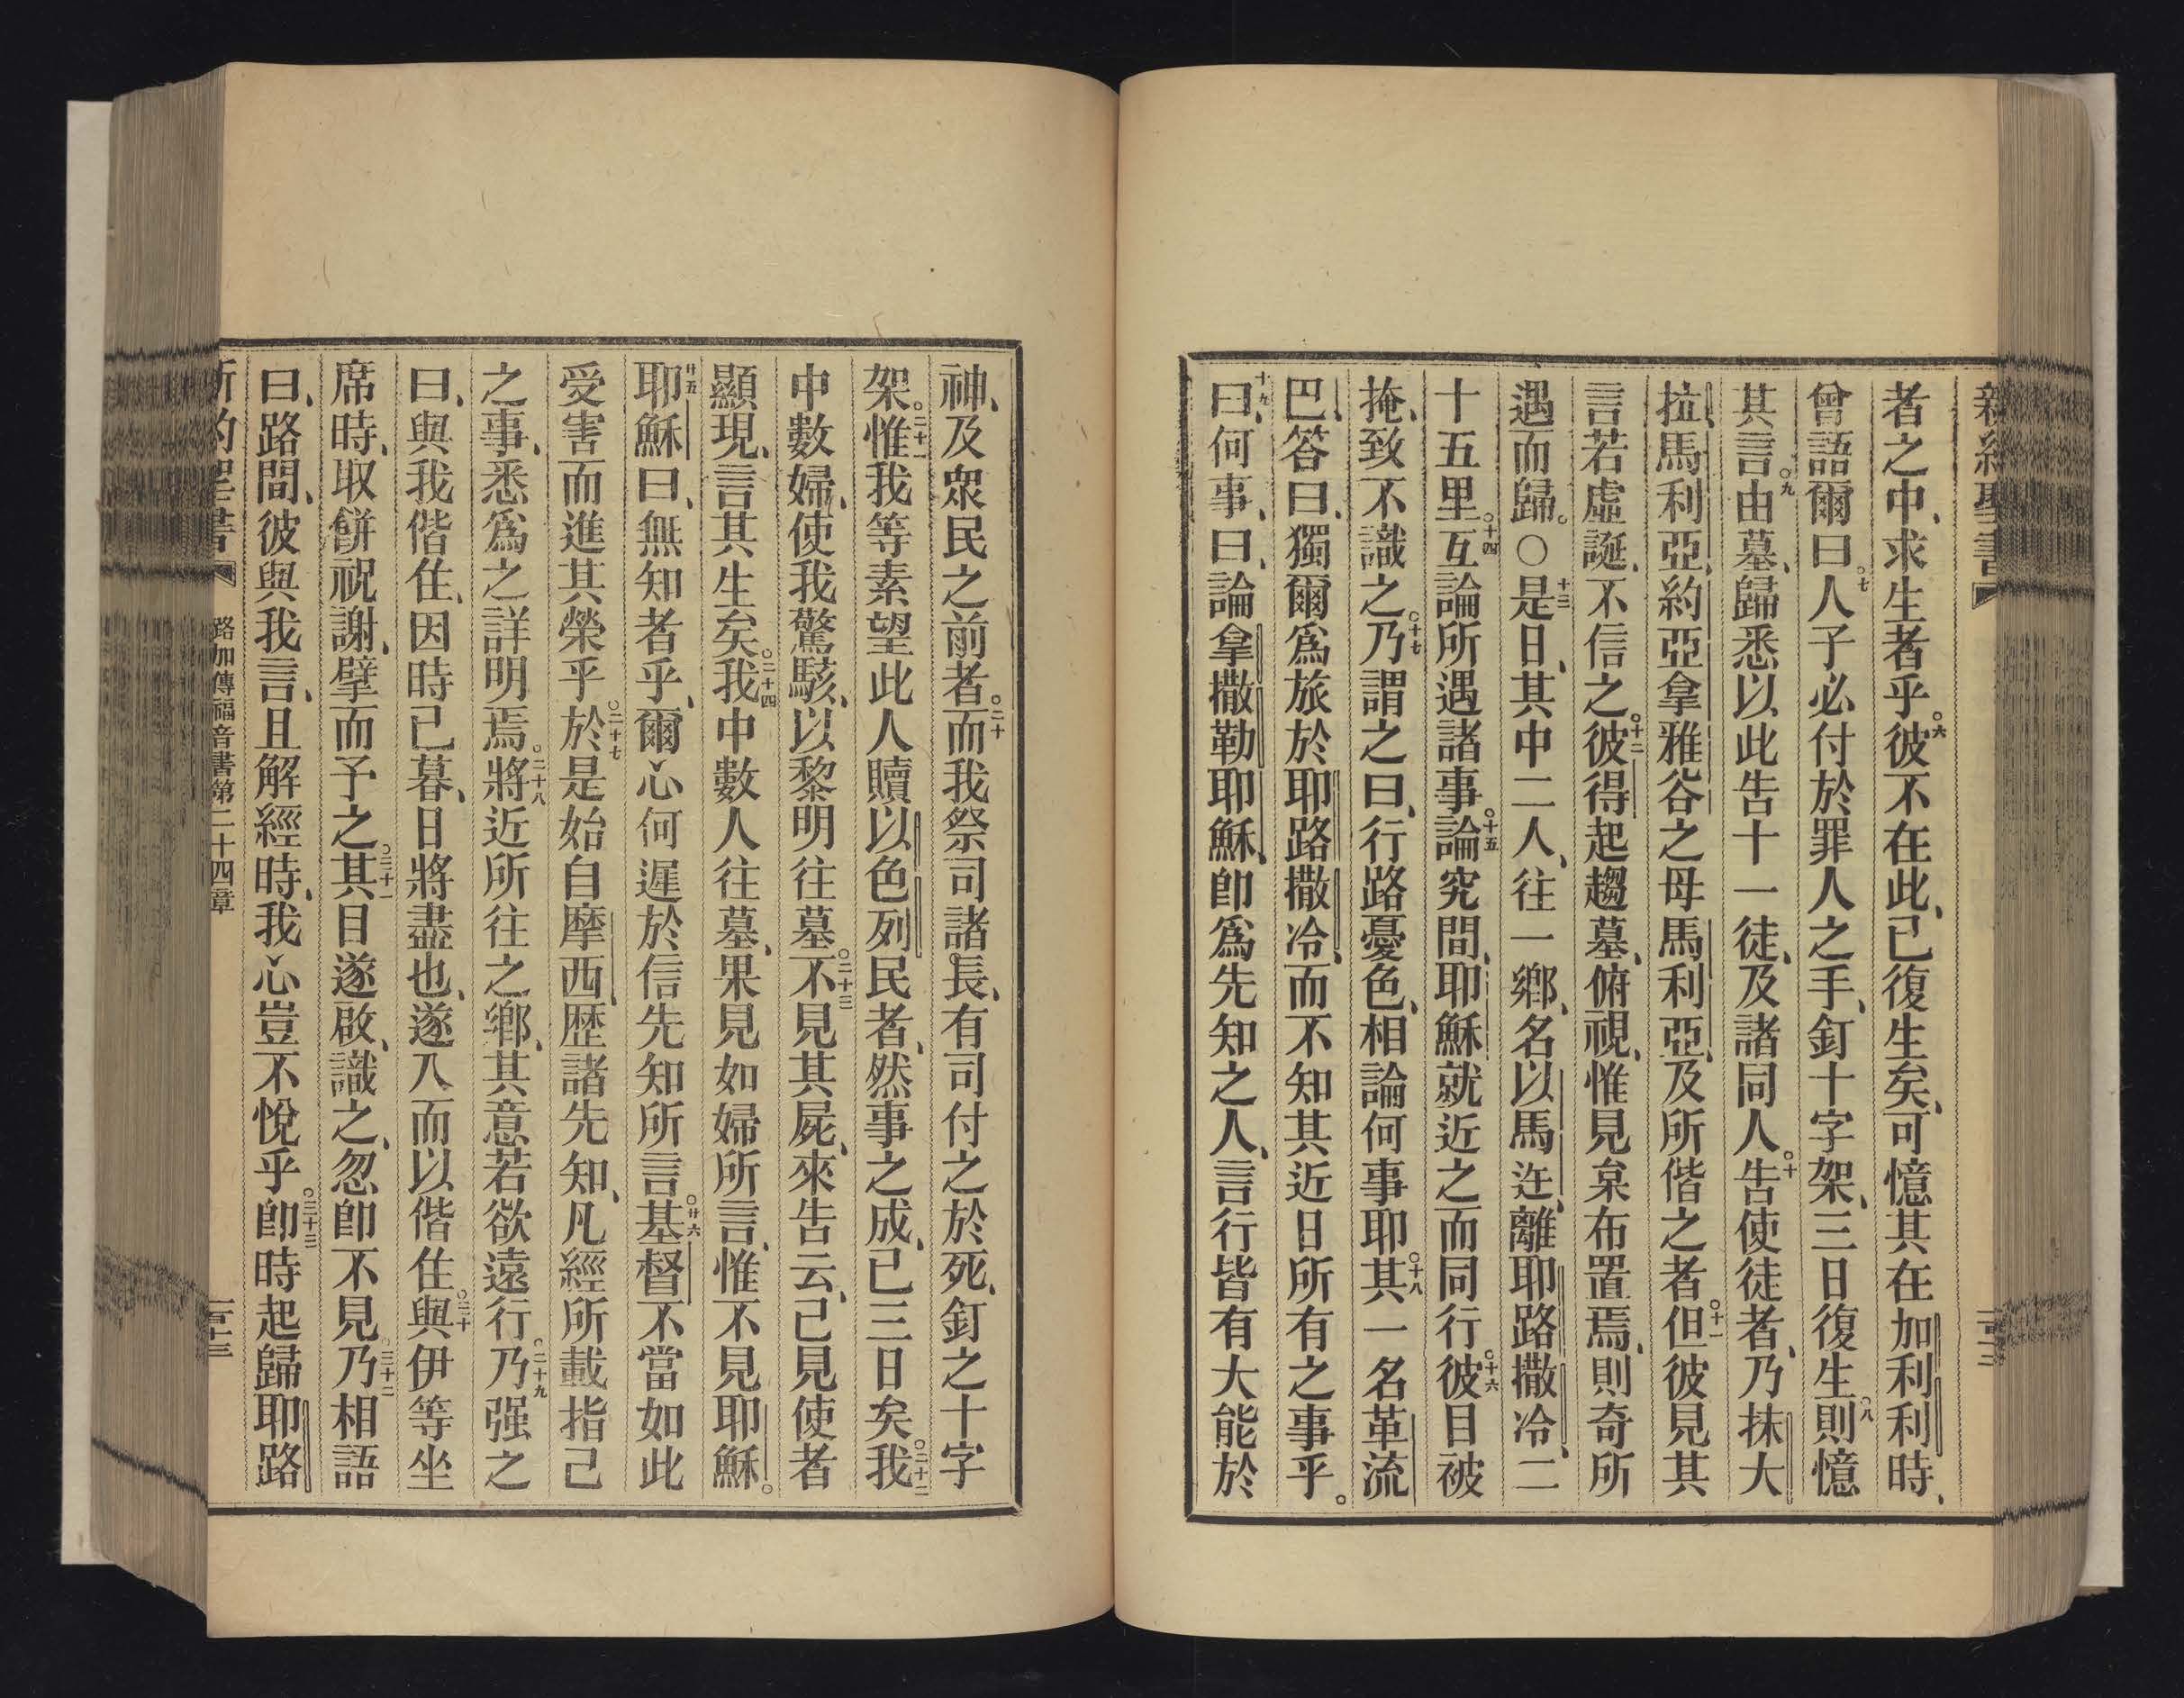 新約聖書
者之中、求生者乎。六彼不在此、已復生矣、可憶其在加利利時、
曾語爾曰。七人子必付於罪人之手、釘十字架、三日復生。八則憶
其言。九由墓、歸悉以此告十一徒、及諸同人。十告使徒者、乃抹大
拉馬利亞、約亞拿雅各之母馬利亞、及所偕之者。十一但彼見其
言若虛誕、不信之。十二彼得起趨墓、俯視、惟見枲布置焉、則奇所
遇而歸。〇十三是日、其中二人、往一鄉、名以馬迕、離耶路撒冷、二
十五里。十四互論所遇諸事。十五論究間、耶穌就近之而同行。十六彼目被
掩、致不識之。十七乃謂之曰、行路憂色、相論何事耶。十八其一名革流
巴、答曰、獨爾爲旅於耶路撒冷、而不知其近日所有之事乎。
十九曰、何事、曰、論拿撒勒耶穌、卽爲先知之人、言行皆有大能於
神、及衆民之前者。二十而我祭司諸長、有司付之於死、釘之十字
架。二十一惟我等素望此人贖以色列民者、然事之成、已三日矣。二十二我
中數婦、使我驚駭、以黎明往墓。二十三不見其屍、來告云、已見使者
顯現、言其生矣。二十四我中數人往墓、果見如婦所言、惟不見耶穌。
廿五耶穌曰、無知者乎、爾心何遲於信先知所言。廿六基督不當如此
受害而進其榮乎。二十七於是始自摩西、歷諸先知、凡經所載指己
之事、悉爲之詳明焉。二十八將近所往之鄉、其意若欲遠行。二十九乃强之
曰、與我偕住、因時已暮、日將盡也、遂入而以偕住。三十與伊等坐
席時、取餅祝謝、擘而予之。三十一其目遂啟、識之、忽卽不見。三十二乃相語
曰、路間、彼與我言、且解經時、我心豈不悅乎。三十三卽時起歸耶路
新約聖書 路加傳福音書第二十四章